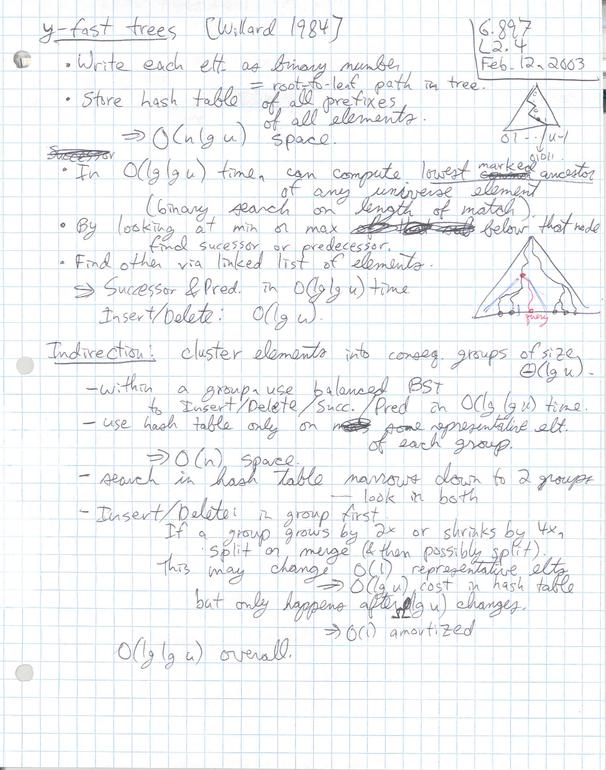 y-fast trees [Willard 1984]
6.897
L2.4
Feb. 12, 2003
• Write each elt. as binary number
= root-to-leaf path in tree.
• Store hash table of all prefixes
of all elements.
⇒ O(n lg u) space.
01 ... u-1
• In O(lg lg u) time, can compute lowest marked ancestor
of any universe element
(binary search on length of match).
• By looking at min or max below that node
find sucessor or predecessor.
• Find other via linked list of elements.
⇒ Successor & Pred. in O(lg lg u) time
Insert/Delete: O(lg u).
query
Indirection: cluster elements into conseq. groups of size
Θ(lg u).
– within a group, use balanced BST
to Insert/Delete/Succ./Pred in O(lg lg u) time.
– use hash table only on one representative elt.
of each group.
⇒ O(n) space.
– search in hash table narrows down to 2 groups
— look in both
– Insert/Delete: in group first
If a group grows by 2x or shrinks by 4x,
split or merge (& then possibly split).
This may change O(1) representative elts
⇒ O(lg u) cost in hash table
but only happens after Ω(lg u) changes.
⇒ O(1) amortized
O(lg lg u) overall.